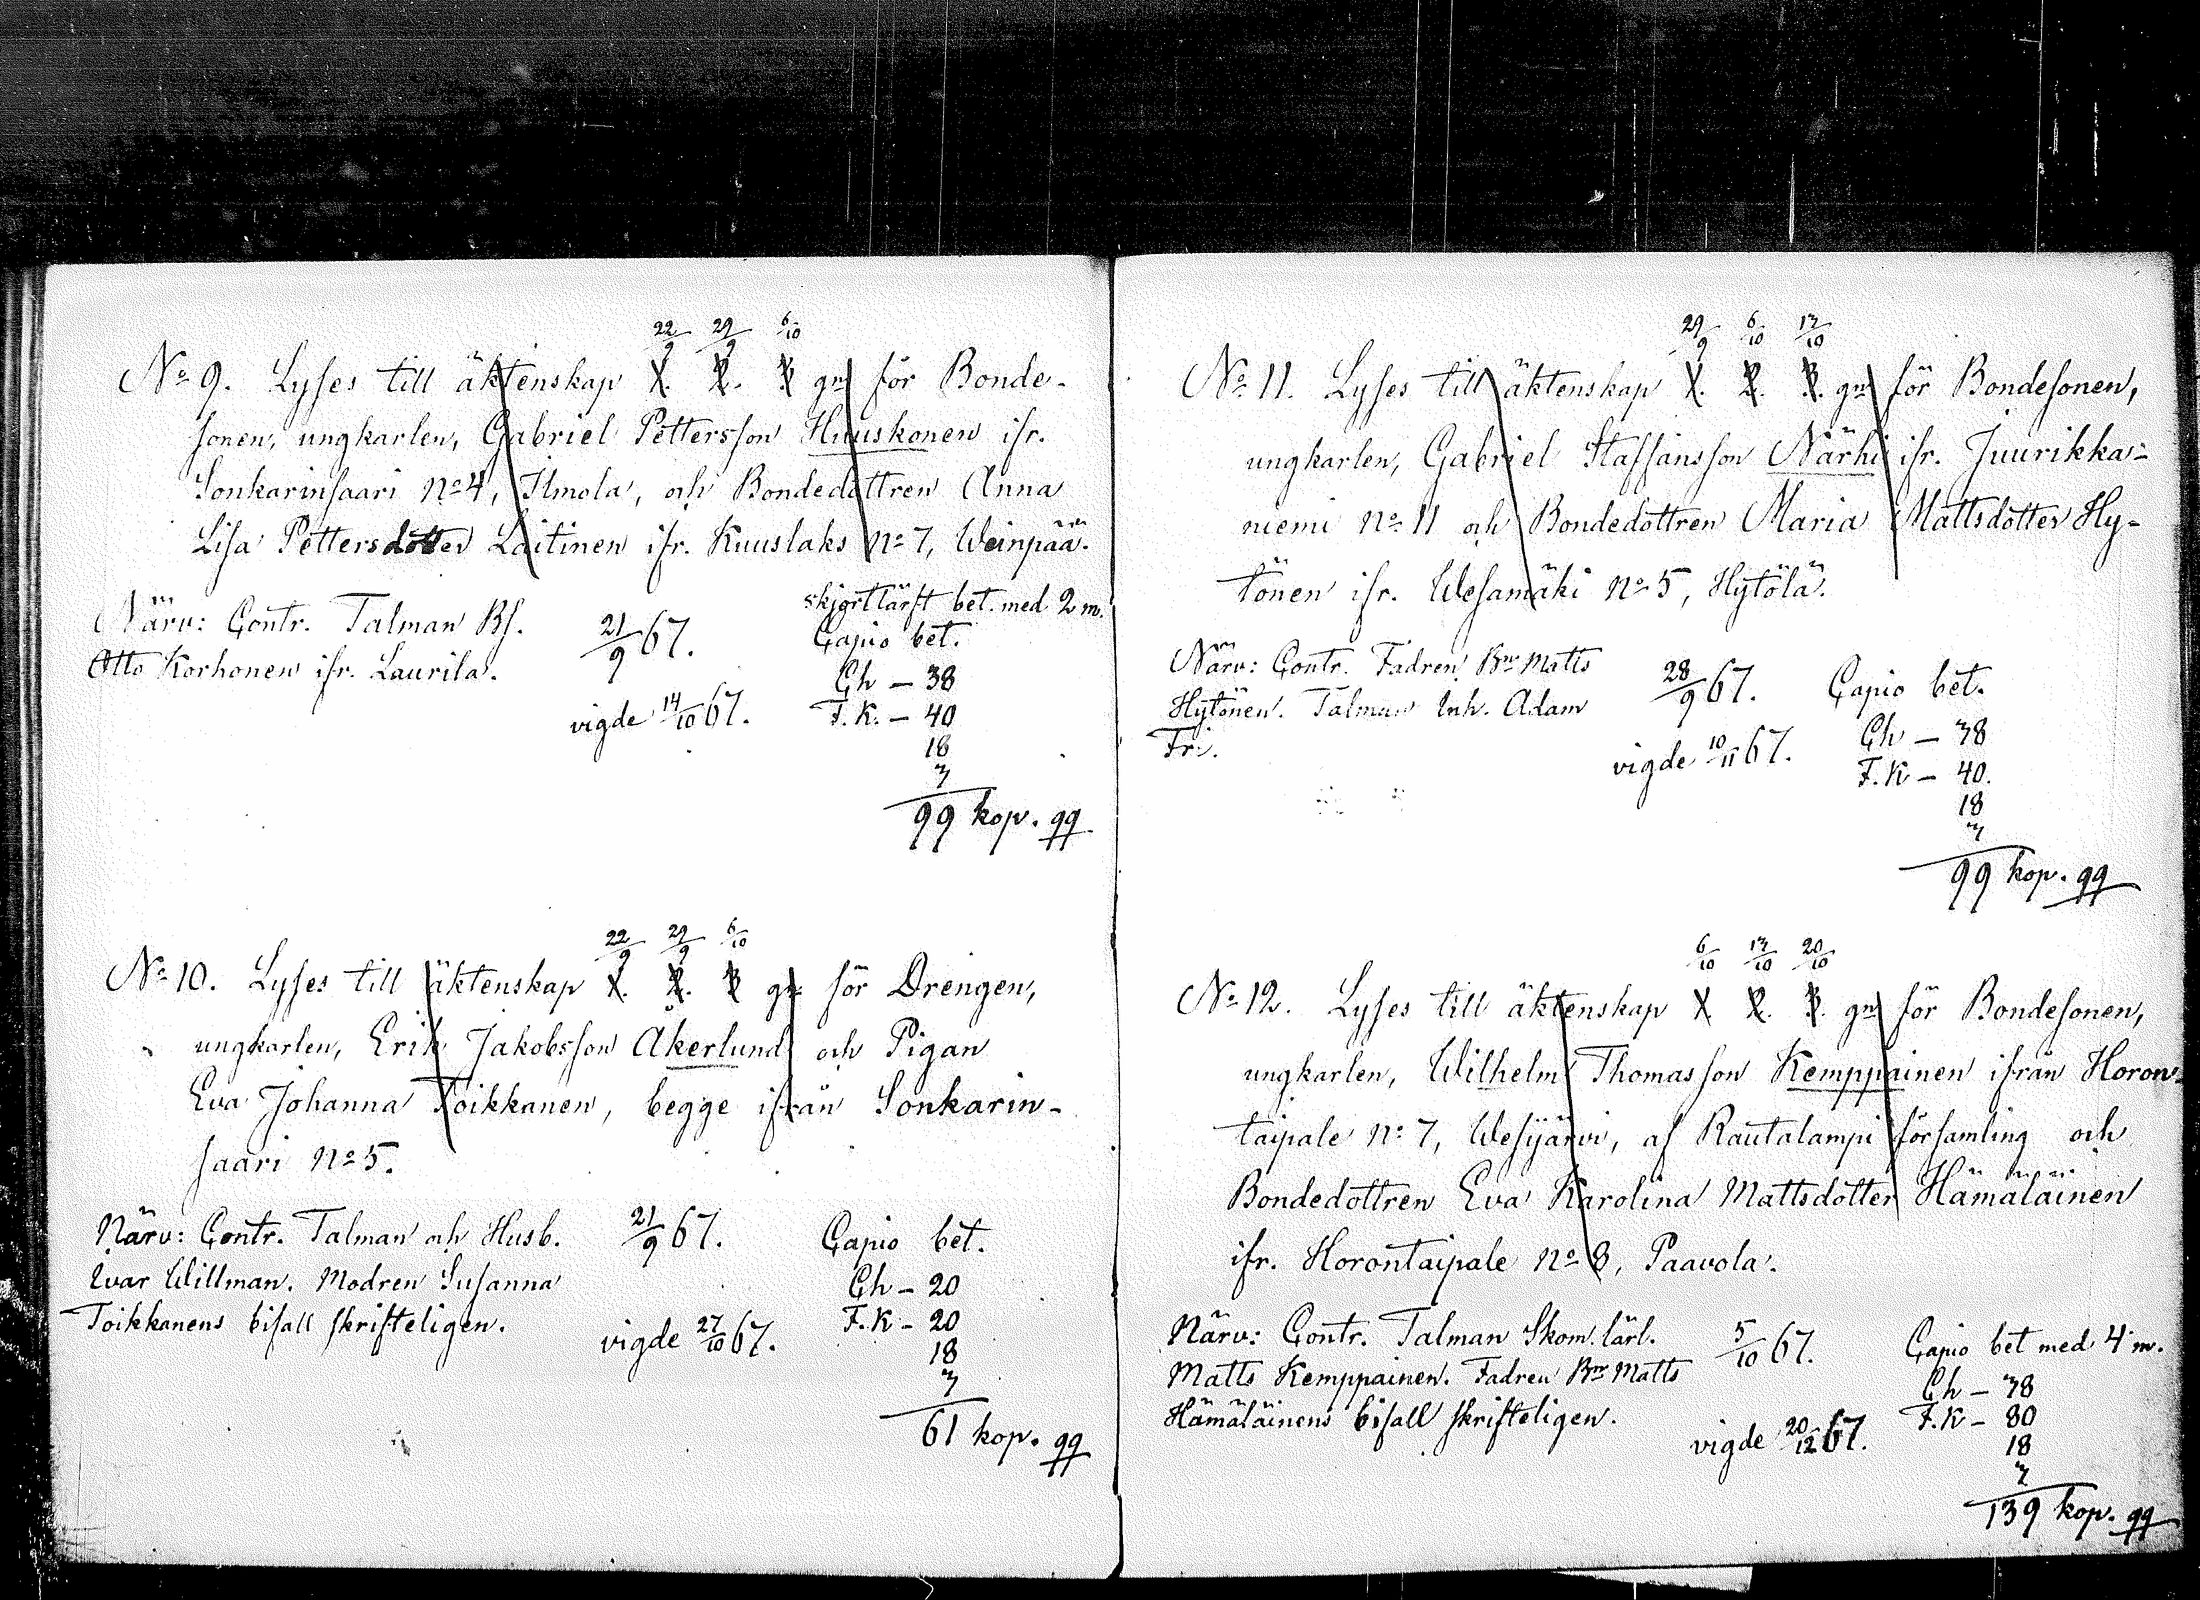 22/9 29/9 6/10
No 9. Lyses till äktenskap 1. 2. 3 gn för Bonde-
sonen, ungkarlen, Gabriel Pettersson Huuskonen ifr.
Sonkarinsaari No 4, Ilmola, och Bondedottren Anna
Lisa Pettersdotter Laitinen ifr. Kuuslaks No 7, Weinpää.
skjortlärft bet. med 2 m.
Närv: Contr. Talman Bs. 21/9 67. Capio bet.
Otto Korhonen ifr. Laurila. Ch – 38
vigde 14/10 67. F.K. – 40
18
3
99 kop. qq
22/9 29/9 6/10
No 10. Lyses till äktenskap 1. 2. 3 gn för Drengen,
ungkarlen, Erik Jakobsson Akerlund och Pigan
Eva Johanna Toikkanen, begge ifrån Sonkarin-
saari No 5.
Närv: Contr. Talman och Husb. 21/9 67. Capio bet.
Ivar Willman. Modren Susanna Ch – 20
Toikkanens bifall skrifteligen. vigde 27/10 67. F.K – 20
18
3
61 kop. qq
29/9 6/10 13/10
No 11. Lyses till äktenskap 1. 2. 3. gn för Bondesonen,
ungkarlen, Gabriel Staffansson Närhi ifr. Juurikka-
niemi No 11 och Bondedottren Maria Mattsdotter Hy-
tönen ifr. Wesamäki No 5, Hytölä.
Närv: Contr. Fadren Bn Matts 28/9 67. Capio bet.
Hytönen. Talman Inh. Adam Ch – 38
Fri. vigde 10/11 67. F.K – 40.
18
3
99 kop. qq
6/10 13/10 20/10
No 12. Lyses till äktenskap 1 2. 3. gn för Bondesonen,
ungkarlen, Wilhelm Thomasson Kemppainen ifrån Horon-
taipale No 7, Wesijärvi, af Rautalampi församling och
Bondedottren Eva Karolina Mattsdotter Hämäläinen
ifr. Horontaipale No 8, Paavola.
Närv: Contr. Talman Skom. lärl. 5/10 67. Capio bet med 4 m.
Matts Kemppainen. Fadren Bn Matts Ch – 38
Hämäläinens bifall skrifteligen. F.K – 80
vigde 20/12 67. 18
3
139 kop. qq